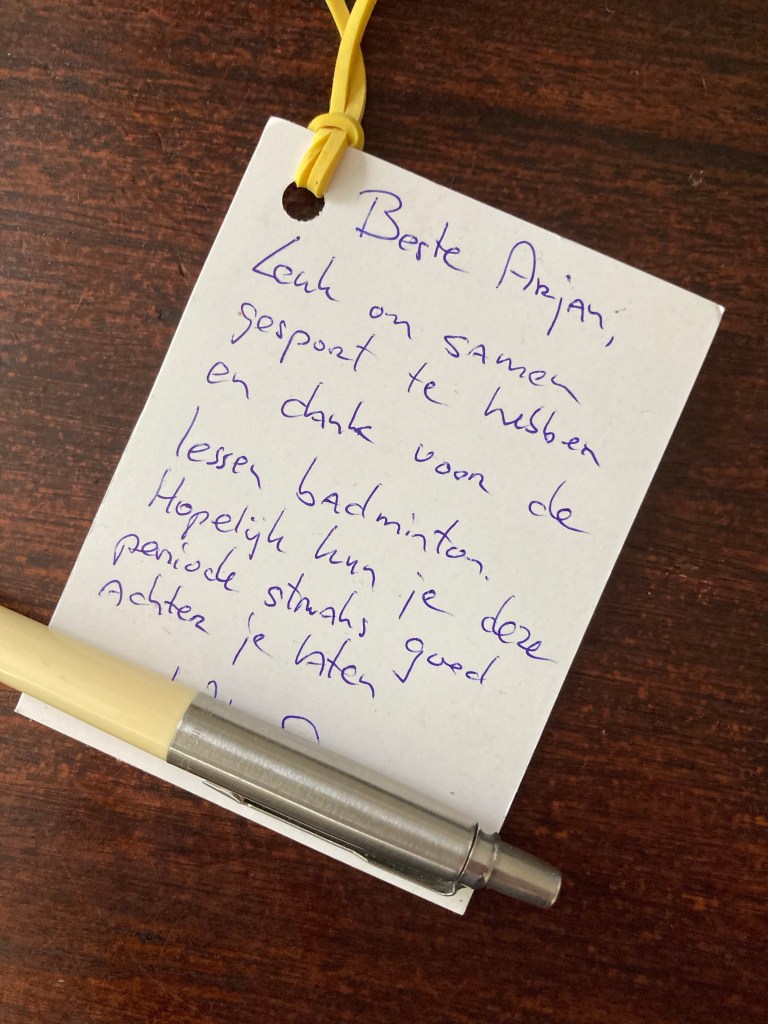 Beste Arjan,
Leuk om samen
gesport te hebben
en dank voor de
lessen badminton.
Hopelijk kun je deze
periode straks goed
achter je laten